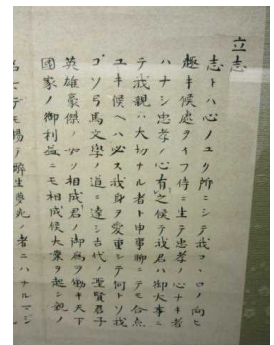 立志
志トハ心ノユク所ニシテ我コヽロノ向ヒ
趣キ候處ヲイフ侍ニ生テ忠孝ノ心ナキ者
ハナシ忠孝ノ心有之候テ我君ハ御大事ニ
テ我親ハ大切ナル者ト申事聊ニテモ合点
ユキ候ヘハ必ス我身ヲ愛重シテ何トソ我
コソ弓馬文學ノ道ニ達シ古代ノ聖賢君子
英雄豪傑ノ如ク相成君ノ御為ヲ働キ天下
國家ノ御利益ニモ相成候大業ヲ起シ親ノ
名マテモ揚テ酔生夢死ノ者ニハナルマジ